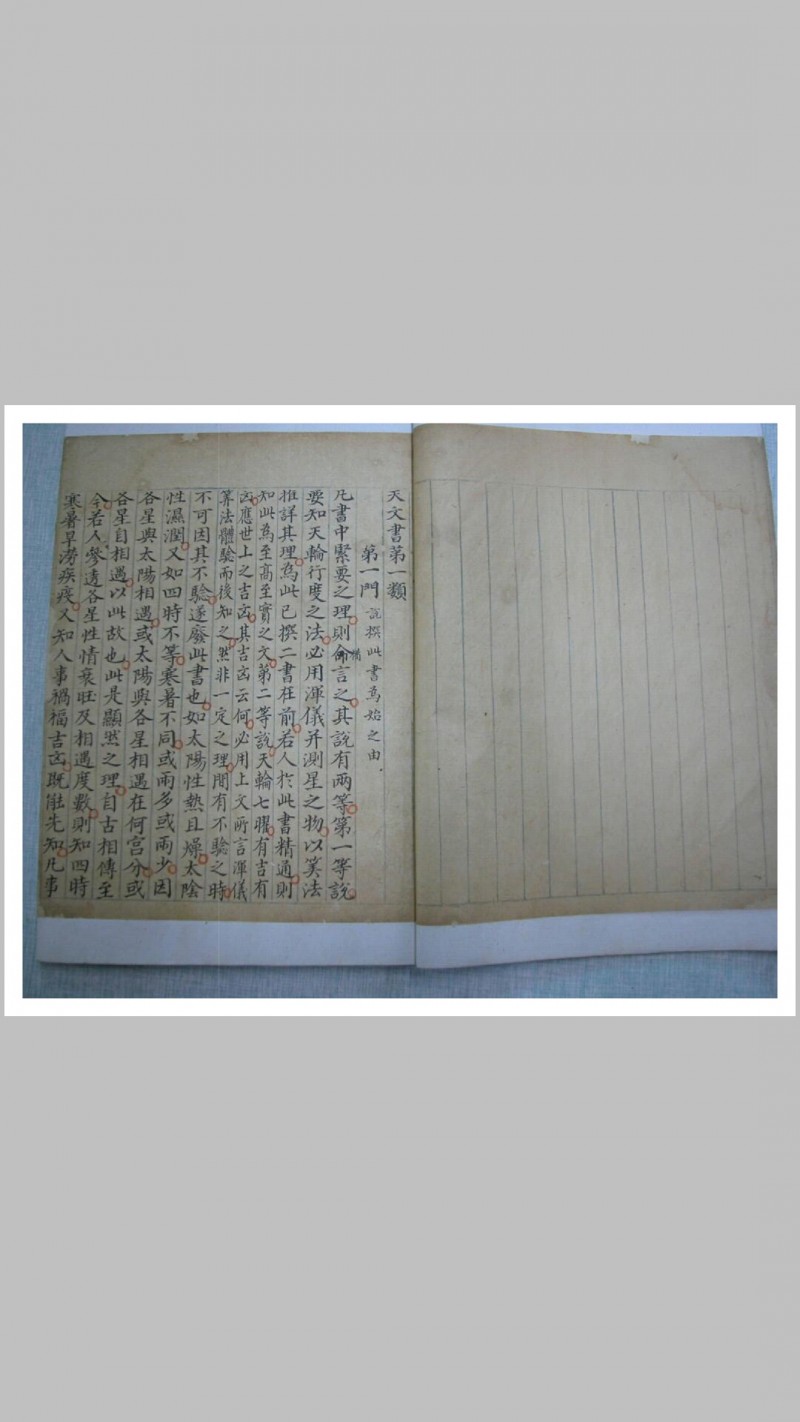 天文書第一類
第一門 說撰此書爲始之由
凡書中緊要之理則言之其說有兩等第一等說
要知天輪行度之法必用渾儀并測星之物以筭法
推詳其理爲此已撰二書在前若人於此書精通則
知此爲至高至實之文第二等說天輪七曜有吉有
凶應世上之吉凶其吉凶云何必用上文所言渾儀
筭法體驗而後知之然非一定之理間有不驗之時
不可因其不驗遂廢此書也如太陽性熱且燥太陰
性濕潤又如四時不等寒暑不同或雨多或雨少因
各星與太陽相遇或太陽與各星相遇在何宮分或
各星自相遇以此故也此是顯然之理自古相傳至
今若人參透各星性情衰旺及相遇度數則知四時
寒暑旱澇疾疫又知人事禍福吉凶既能先知凡事